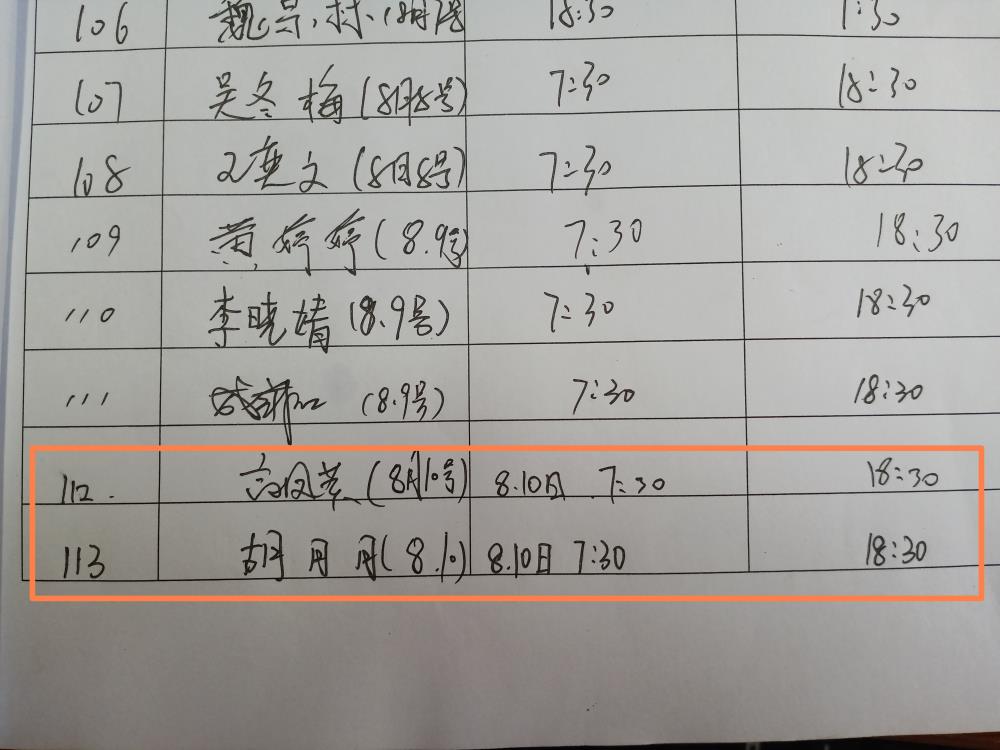 106 魏 林(8月7号 18:30 7:30
107 吴冬梅(8月8号) 7:30 18:30
108 文(8月8号) 7:30 18:30
109 黄婷婷(8.9号 7:30 18:30
110 李晓婧(8.9号) 7:30 18:30
111 (8.9号) 7:30 18:30
112. 高 (8月10号) 8.10日 7:30 18:30
113 胡月月(8.10) 8.10日 7:30 18:30